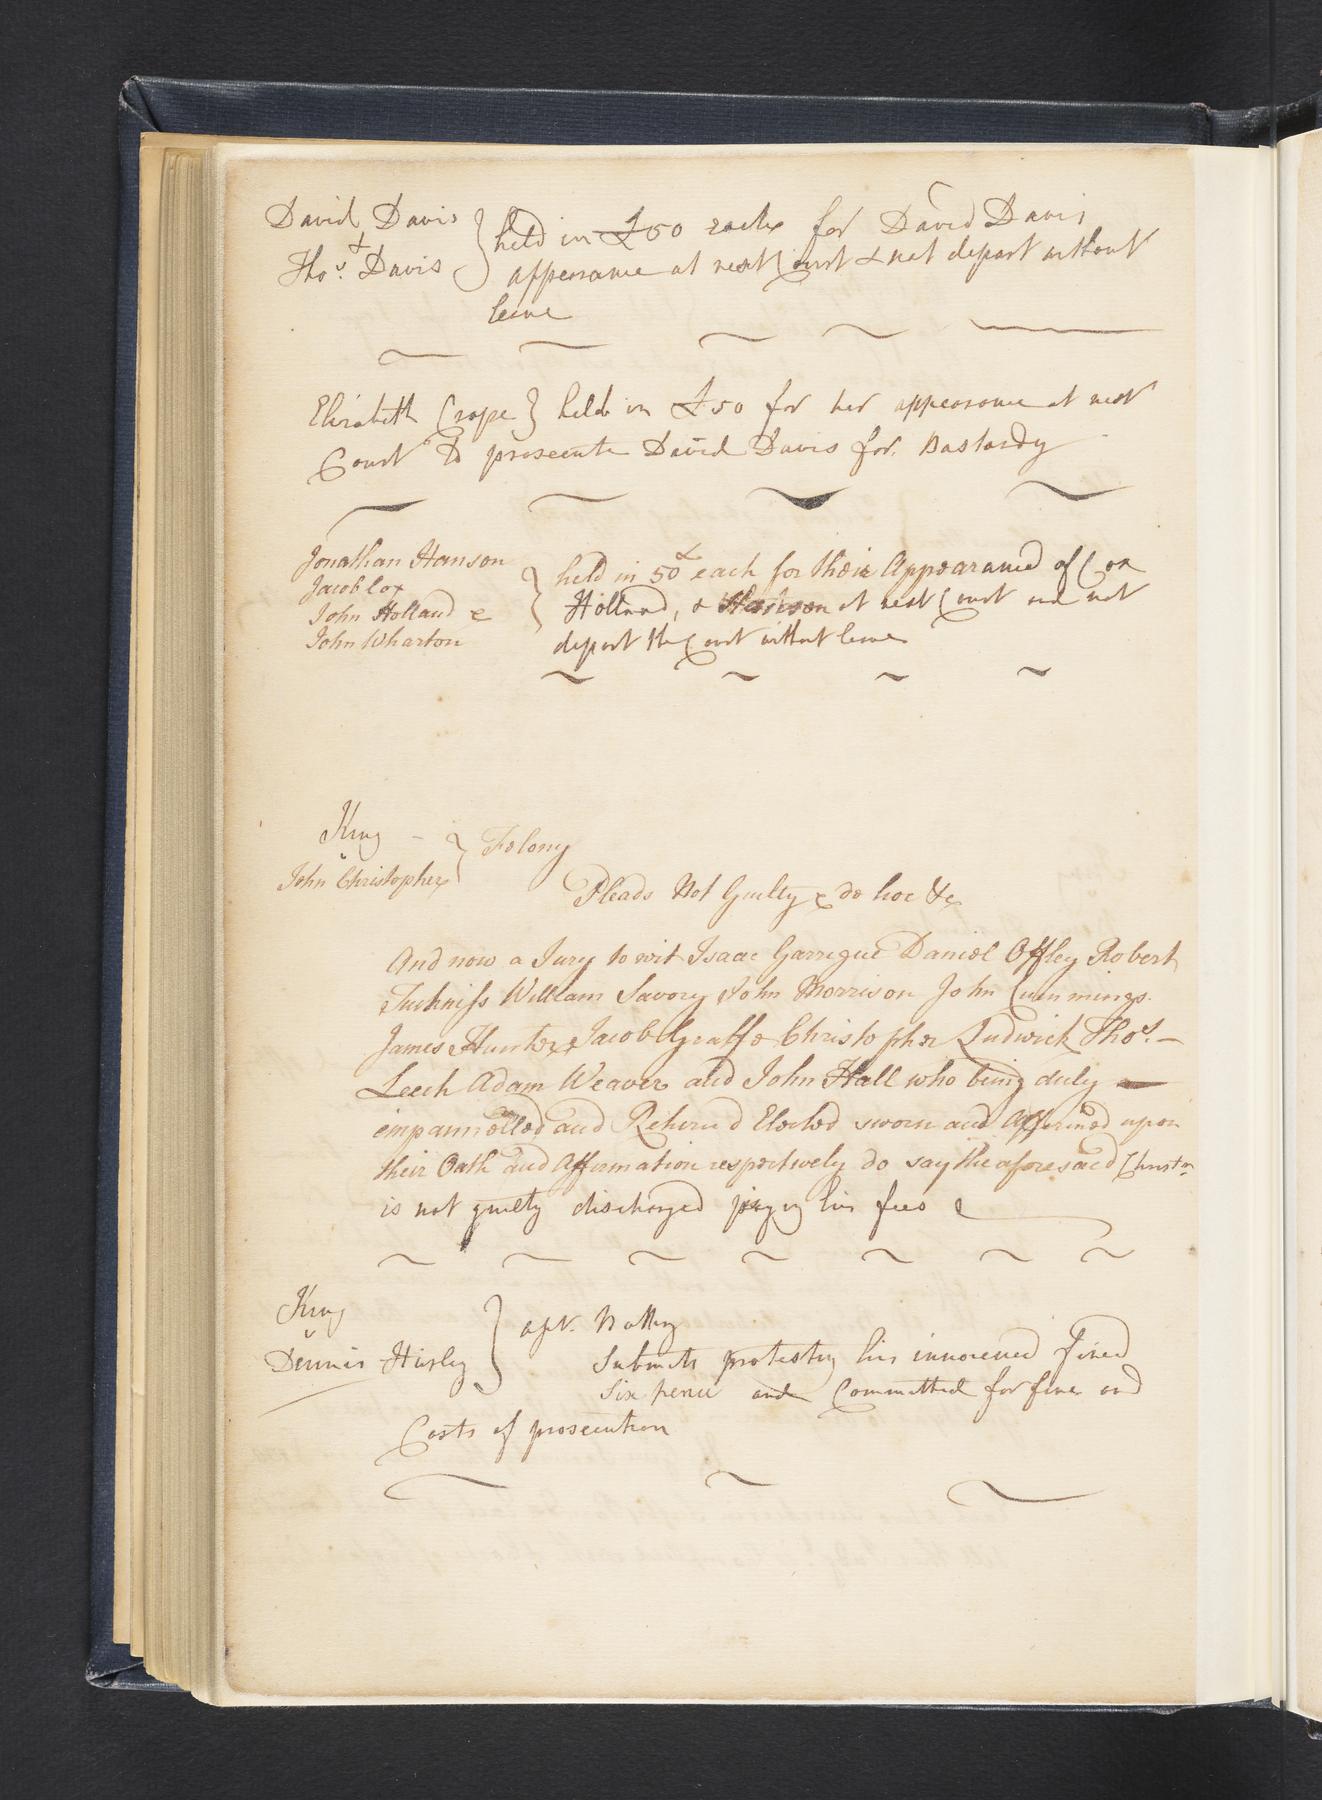 David Davis } held in £50 each for David Davis
Thos. Davis appearance at next Court & not depart without
leave
Elizabeth Crape } held in £50 for her appearance at next
Court to prosecute David Davis for Bastardy
Jonathan Hanson } held in 50£ each for their Appearance of Cox
Jacob Cox Holland, & Hanson at next Court and not
John Holland & depart the Court without leave
John Wharton
King
v
John Christopher } Felony
Pleads Not Guilty & de hoc &c
And now a Jury to wit Isaac Garrigue Daniel Offley Robert
Tuckniss William Savory John Morrison John Cummings
James Hunter Jacob Graff Christopher Ludwick Thos.
Leech Adam Weaver and John Hall who being duly
empannelled and Returnd Elected sworn and Affirmed upon
their Oath and Affirmation respectively do say the aforesaid Christr
is not guilty discharged paying his fees
King
v
Dennis Hurley } aslt. Battry
Submits protestg his innocence fined
Six pence and Committed for fine and
Costs of prosecution